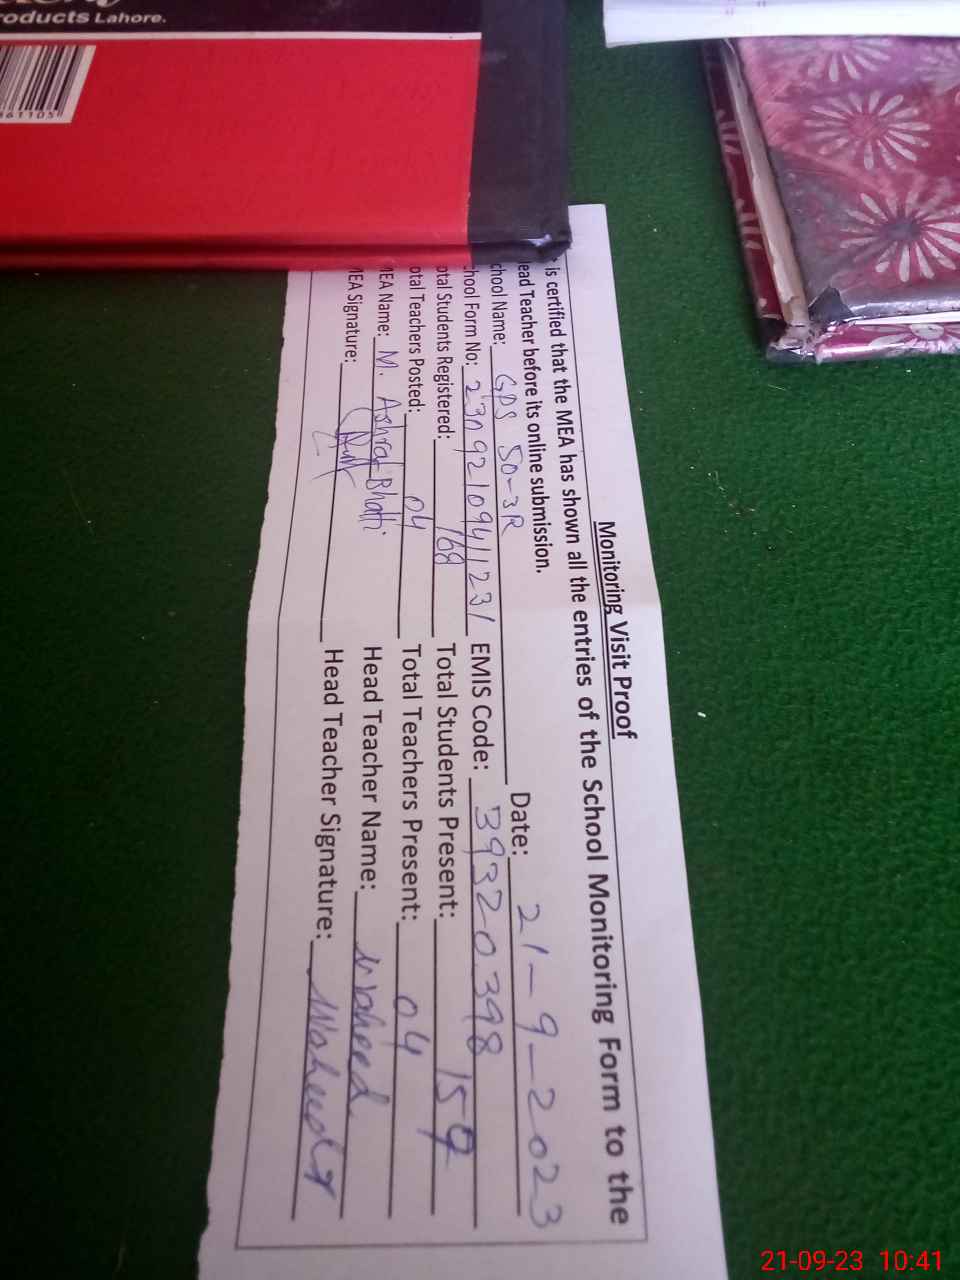 roducts Lahore.
Monitoring Visit Proof
is certified that the MEA has shown all the entries of the School Monitoring Form to the
ead Teacher before its online submission.
chool Name: GPS 50-3R Date: 21-9-2023
hool Form No: 23092109411231 EMIS Code: 39320398
otal Students Registered: 168 Total Students Present: 159
otal Teachers Posted: 04 Total Teachers Present: 04
MEA Name: M. Ashraf Bhatti Head Teacher Name: Waheed
MEA Signature: Head Teacher Signature: Waheed
21-09-23 10:41